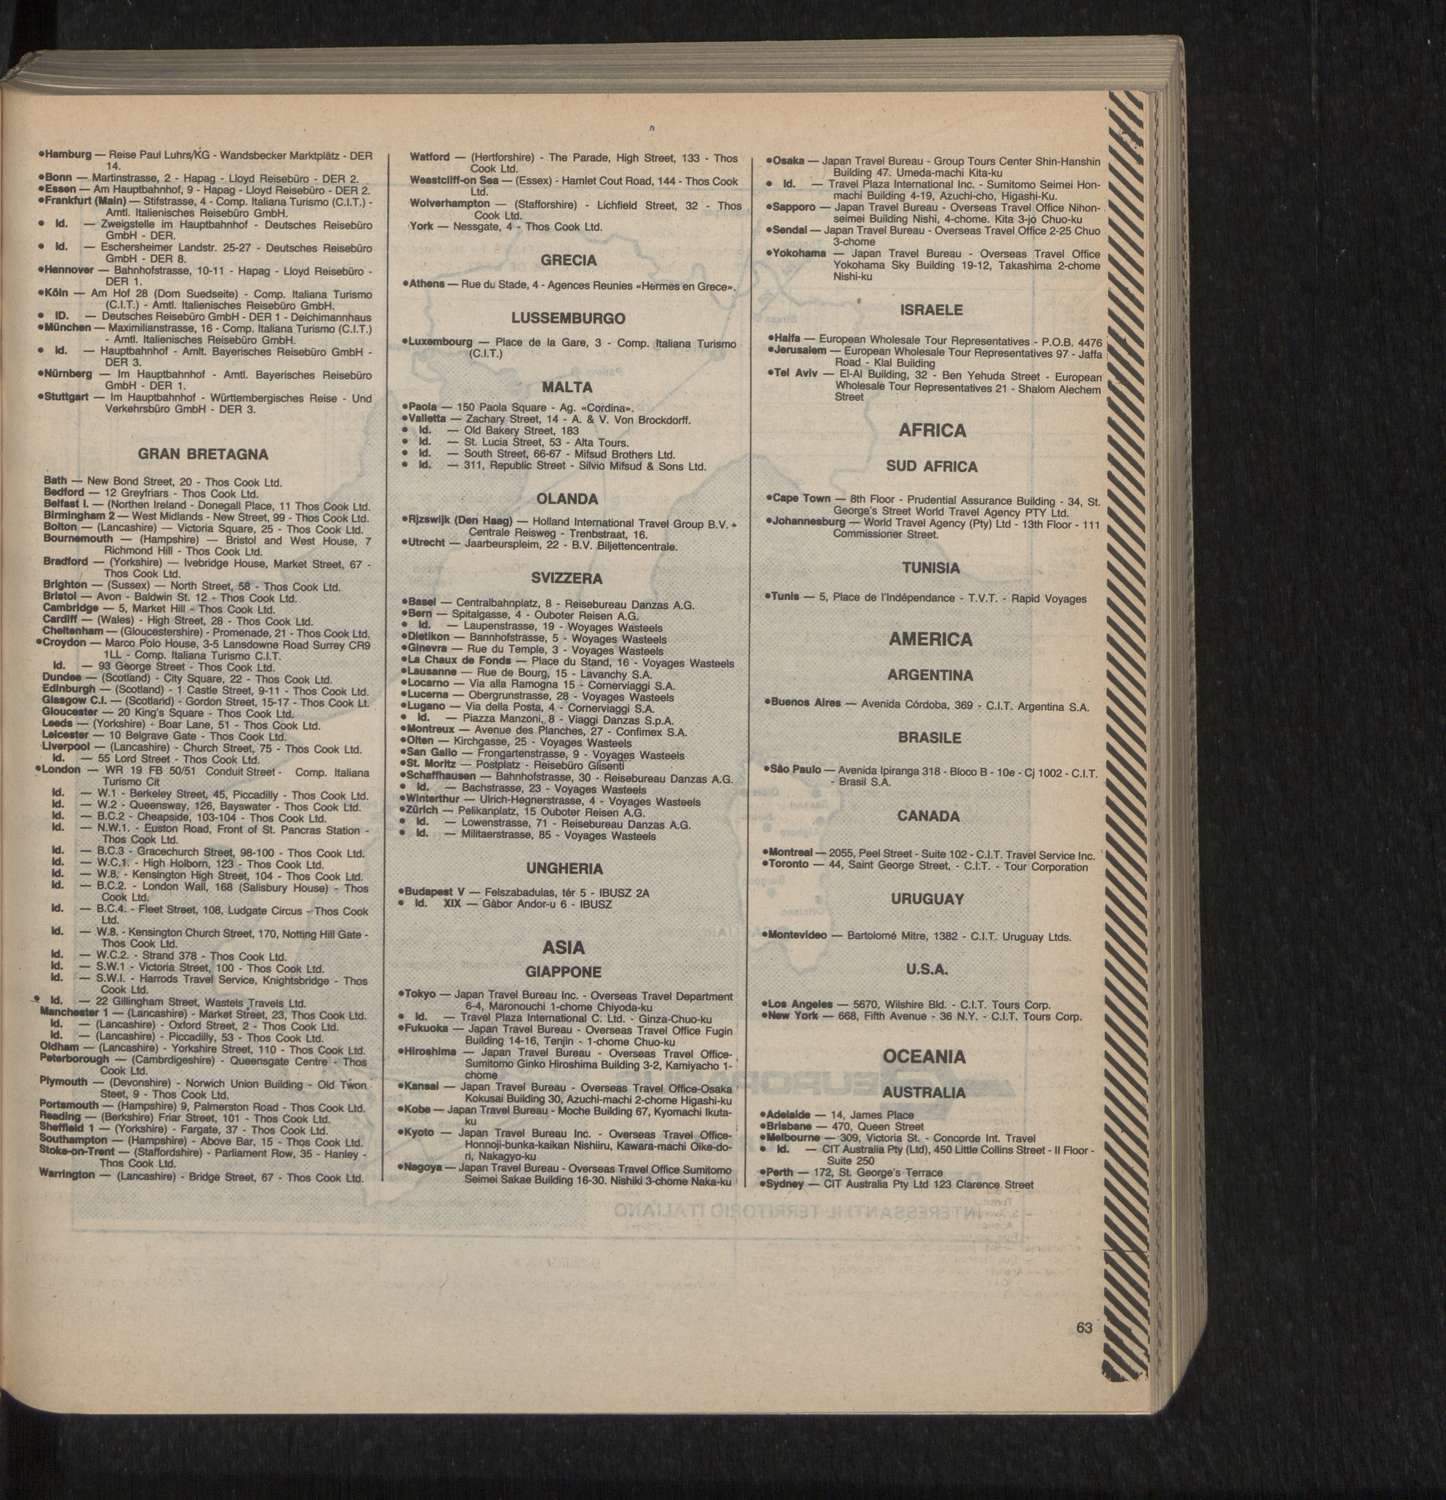 ●Hamburg — Reise Paul Luhrs/KG - Wandsbecker Marktplätz - DER
14.
●Bonn — Martinstrasse, 2 - Hapag - Lloyd Reisebüro - DER 2.
●Essen — Am Hauptbahnhof, 9 - Hapag - Lloyd Reisebüro - DER 2.
●Frankfurt (Main) — Stifstrasse, 4 - Comp. Italiana Turismo (C.I.T.) -
Amtl. Italienisches Reisebüro GmbH.
● Id. — Zweigstelle im Hauptbahnhof - Deutsches Reisebüro
GmbH - DER.
● Id. — Eschersheimer Landstr. 25-27 - Deutsches Reisebüro
GmbH - DER 8.
●Hannover — Bahnhofstrasse, 10-11 - Hapag - Lloyd Reisebüro -
DER 1.
●Köln — Am Hof 28 (Dom Suedseite) - Comp. Italiana Turismo
(C.I.T.) - Amtl. Italienisches Reisebüro GmbH.
● ID. — Deutsches Reisebüro GmbH - DER 1 - Deichimannhaus
●München — Maximilianstrasse, 16 - Comp. Italiana Turismo (C.I.T.)
- Amtl. Italienisches Reisebüro GmbH.
● Id. — Hauptbahnhof - Amlt. Bayerisches Reisebüro GmbH -
DER 3.
●Nürnberg — Im Hauptbahnhof - Amtl. Bayerisches Reisebüro
GmbH - DER 1.
●Stuttgart — Im Hauptbahnhof - Württembergisches Reise - Und
Verkehrsbüro GmbH - DER 3.
GRAN BRETAGNA
Bath — New Bond Street, 20 - Thos Cook Ltd.
Bedford — 12 Greyfriars - Thos Cook Ltd.
Belfast I. — (Northen Ireland - Donegall Place, 11 Thos Cook Ltd.
Birmingham 2 — West Midlands - New Street, 99 - Thos Cook Ltd.
Bolton — (Lancashire) — Victoria Square, 25 - Thos Cook Ltd.
Bournemouth — (Hampshire) — Bristol and West House, 7
Richmond Hill - Thos Cook Ltd.
Bradford — (Yorkshire) — Ivebridge House, Market Street, 67 -
Thos Cook Ltd.
Brighton — (Sussex) — North Street, 58 - Thos Cook Ltd.
Bristol — Avon - Baldwin St. 12 - Thos Cook Ltd.
Cambridge — 5, Market Hill - Thos Cook Ltd.
Cardiff — (Wales) - High Street, 28 - Thos Cook Ltd.
Cheltenham — (Gloucestershire) - Promenade, 21 - Thos Cook Ltd.
●Croydon — Marco Polo House, 3-5 Lansdowne Road Surrey CR9
1LL - Comp. Italiana Turismo C.I.T.
Id. — 93 George Street - Thos Cook Ltd.
Dundee — (Scotland) - City Square, 22 - Thos Cook Ltd.
Edinburgh — (Scotland) - 1 Castle Street, 9-11 - Thos Cook Ltd.
Glasgow C.I. — (Scotland) - Gordon Street, 15-17 - Thos Cook Lt.
Gloucester — 20 King's Square - Thos Cook Ltd.
Leeds — (Yorkshire) - Boar Lane, 51 - Thos Cook Ltd.
Leicester — 10 Belgrave Gate - Thos Cook Ltd.
Liverpool — (Lancashire) - Church Street, 75 - Thos Cook Ltd.
Id. — 55 Lord Street - Thos Cook Ltd.
●London — WR 19 FB 50/51 Conduit Street - Comp. Italiana
Turismo Cit
Id. — W.1 - Berkeley Street, 45, Piccadilly - Thos Cook Ltd.
Id. — W.2 - Queensway, 126, Bayswater - Thos Cook Ltd.
Id. — B.C.2 - Cheapside, 103-104 - Thos Cook Ltd.
Id. — N.W.1. - Euston Road, Front of St. Pancras Station -
Thos Cook Ltd.
Id. — B.C.3 - Gracechurch Street, 98-100 - Thos Cook Ltd.
Id. — W.C.1. - High Holborn, 123 - Thos Cook Ltd.
Id. — W.8. - Kensington High Street, 104 - Thos Cook Ltd.
Id. — B.C.2. - London Wall, 168 (Salisbury House) - Thos
Cook Ltd.
Id. — B.C.4. - Fleet Street, 108, Ludgate Circus - Thos Cook
Ltd.
Id. — W.8. - Kensington Church Street, 170, Notting Hill Gate -
Thos Cook Ltd.
Id. — W.C.2. - Strand 378 - Thos Cook Ltd.
Id. — S.W.1 - Victoria Street, 100 - Thos Cook Ltd.
Id. — S.W.I. - Harrods Travel Service, Knightsbridge - Thos
Cook Ltd.
● Id. — 22 Gillingham Street, Wastels Travels Ltd.
Manchester 1 — (Lancashire) - Market Street, 23, Thos Cook Ltd.
Id. — (Lancashire) - Oxford Street, 2 - Thos Cook Ltd.
Id. — (Lancashire) - Piccadilly, 53 - Thos Cook Ltd.
Oldham — (Lancashire) - Yorkshire Street, 110 - Thos Cook Ltd.
Peterborough — (Cambrdigeshire) - Queensgate Centre - Thos
Cook Ltd.
Plymouth — (Devonshire) - Norwich Union Building - Old Twon
Steet, 9 - Thos Cook Ltd.
Portsmouth — (Hampshire) 9, Palmerston Road - Thos Cook Ltd.
Reading — (Berkshire) Friar Street, 101 - Thos Cook Ltd.
Sheffield 1 — (Yorkshire) - Fargate, 37 - Thos Cook Ltd.
Southampton — (Hampshire) - Above Bar, 15 - Thos Cook Ltd.
Stoke-on-Trent — (Staffordshire) - Parliament Row, 35 - Hanley -
Thos Cook Ltd.
Warrington — (Lancashire) - Bridge Street, 67 - Thos Cook Ltd.
Watford — (Hertforshire) - The Parade, High Street, 133 - Thos
Cook Ltd.
Weastcliff-on Sea — (Essex) - Hamlet Cout Road, 144 - Thos Cook
Ltd.
Wolverhampton — (Stafforshire) - Lichfield Street, 32 - Thos
Cook Ltd.
York — Nessgate, 4 - Thos Cook Ltd.
GRECIA
●Athens — Rue du Stade, 4 - Agences Reunies «Hermes en Grece».
LUSSEMBURGO
●Luxembourg — Place de la Gare, 3 - Comp. Italiana Turismo
(C.I.T.)
MALTA
●Paola — 150 Paola Square - Ag. «Cordina».
●Valletta — Zachary Street, 14 - A. & V. Von Brockdorff.
● Id. — Old Bakery Street, 183
● Id. — St. Lucia Street, 53 - Alta Tours.
● Id. — South Street, 66-67 - Mifsud Brothers Ltd.
● Id. — 311, Republic Street - Silvio Mifsud & Sons Ltd.
OLANDA
●Rjzswijk (Den Haag) — Holland International Travel Group B.V. +
Centrale Reisweg - Trenbstraat, 16.
●Utrecht — Jaarbeurspleim, 22 - B.V. Biljettencentrale.
SVIZZERA
●Basel — Centralbahnplatz, 8 - Reisebureau Danzas A.G.
●Bern — Spitalgasse, 4 - Ouboter Reisen A.G.
● Id. — Laupenstrasse, 19 - Woyages Wasteels
●Dietikon — Bannhofstrasse, 5 - Woyages Wasteels
●Ginevra — Rue du Temple, 3 - Voyages Wasteels
●La Chaux de Fonds — Place du Stand, 16 - Voyages Wasteels
●Lausanne — Rue de Bourg, 15 - Lavanchy S.A.
●Locarno — Via alla Ramogna 15 - Cornerviaggi S.A.
●Lucerna — Obergrunstrasse, 28 - Voyages Wasteels
●Lugano — Via della Posta, 4 - Cornerviaggi S.A.
● Id. — Piazza Manzoni, 8 - Viaggi Danzas S.p.A.
●Montreux — Avenue des Planches, 27 - Confimex S.A.
●Olten — Kirchgasse, 25 - Voyages Wasteels
●San Gallo — Frongartenstrasse, 9 - Voyages Wasteels
●St. Moritz — Postplatz - Reisebüro Glisenti
●Schaffhausen — Bahnhofstrasse, 30 - Reisebureau Danzas A.G.
● Id. — Bachstrasse, 23 - Voyages Wasteels
●Winterthur — Ulrich-Hegnerstrasse, 4 - Voyages Wasteels
●Zürich — Pelikanplatz, 15 Ouboter Reisen A.G.
● Id. — Lowenstrasse, 71 - Reisebureau Danzas A.G.
● Id. — Militaerstrasse, 85 - Voyages Wasteels
UNGHERIA
●Budapest V — Felszabadulas, tér 5 - IBUSZ 2A
● Id. XIX — Gàbor Andor-u 6 - IBUSZ
ASIA
GIAPPONE
●Tokyo — Japan Travel Bureau Inc. - Overseas Travel Department
6-4, Maronouchi 1-chome Chiyoda-ku
● Id. — Travel Plaza International C. Ltd. - Ginza-Chuo-ku
●Fukuoka — Japan Travel Bureau - Overseas Travel Office Fugin
Building 14-16, Tenjin - 1-chome Chuo-ku
●Hiroshima — Japan Travel Bureau - Overseas Travel Office-
Sumitomo Ginko Hiroshima Building 3-2, Kamiyacho 1-
chome
●Kansai — Japan Travel Bureau - Overseas Travel Office-Osaka
Kokusai Building 30, Azuchi-machi 2-chome Higashi-ku
●Kobe — Japan Travel Bureau - Moche Building 67, Kyomachi Ikuta-
ku
●Kyoto — Japan Travel Bureau Inc. - Overseas Travel Office-
Honnoji-bunka-kaikan Nishiiru, Kawara-machi Oike-do-
ri, Nakagyo-ku
●Nagoya — Japan Travel Bureau - Overseas Travel Office Sumitomo
Seimei Sakae Building 16-30. Nishiki 3-chome Naka-ku
●Osaka — Japan Travel Bureau - Group Tours Center Shin-Hanshin
Building 47. Umeda-machi Kita-ku
● Id. — Travel Plaza International Inc. - Sumitomo Seimei Hon-
machi Building 4-19, Azuchi-cho, Higashi-Ku.
●Sapporo — Japan Travel Bureau - Overseas Travel Office Nihon-
seimei Building Nishi, 4-chome. Kita 3-jo Chuo-ku
●Sendai — Japan Travel Bureau - Overseas Travel Office 2-25 Chuo
3-chome
●Yokohama — Japan Travel Bureau - Overseas Travel Office
Yokohama Sky Building 19-12, Takashima 2-chome
Nishi-ku
ISRAELE
●Haifa — European Wholesale Tour Representatives - P.O.B. 4476
●Jerusalem — European Wholesale Tour Representatives 97 - Jaffa
Road - Klal Building
●Tel Aviv — El-Al Building, 32 - Ben Yehuda Street - European
Wholesale Tour Representatives 21 - Shalom Alechem
Street
AFRICA
SUD AFRICA
●Cape Town — 8th Floor - Prudential Assurance Building - 34, St.
George's Street World Travel Agency PTY Ltd.
●Johannesburg — World Travel Agency (Pty) Ltd - 13th Floor - 111
Commissioner Street.
TUNISIA
●Tunis — 5, Place de l'Indépendance - T.V.T. - Rapid Voyages
AMERICA
ARGENTINA
●Buenos Aires — Avenida Córdoba, 369 - C.I.T. Argentina S.A.
BRASILE
●São Paulo — Avenida Ipiranga 318 - Bloco B - 10e - Cj 1002 - C.I.T.
- Brasil S.A.
CANADA
●Montreal — 2055, Peel Street - Suite 102 - C.I.T. Travel Service Inc.
●Toronto — 44, Saint George Street, - C.I.T. - Tour Corporation
URUGUAY
●Montevideo — Bartolomé Mitre, 1382 - C.I.T. Uruguay Ltds.
U.S.A.
●Los Angeles — 5670, Wilshire Bld. - C.I.T. Tours Corp.
●New York — 668, Fifth Avenue - 36 N.Y. - C.I.T. Tours Corp.
OCEANIA
AUSTRALIA
●Adelaide — 14, James Place
●Brisbane — 470, Queen Street
●Melbourne — 309, Victoria St. - Concorde Int. Travel
● Id. — CIT Australia Pty (Ltd), 450 Little Collins Street - II Floor -
Suite 250
●Perth — 172, St. George's Terrace
●Sydney — CIT Australia Pty Ltd 123 Clarence Street
63